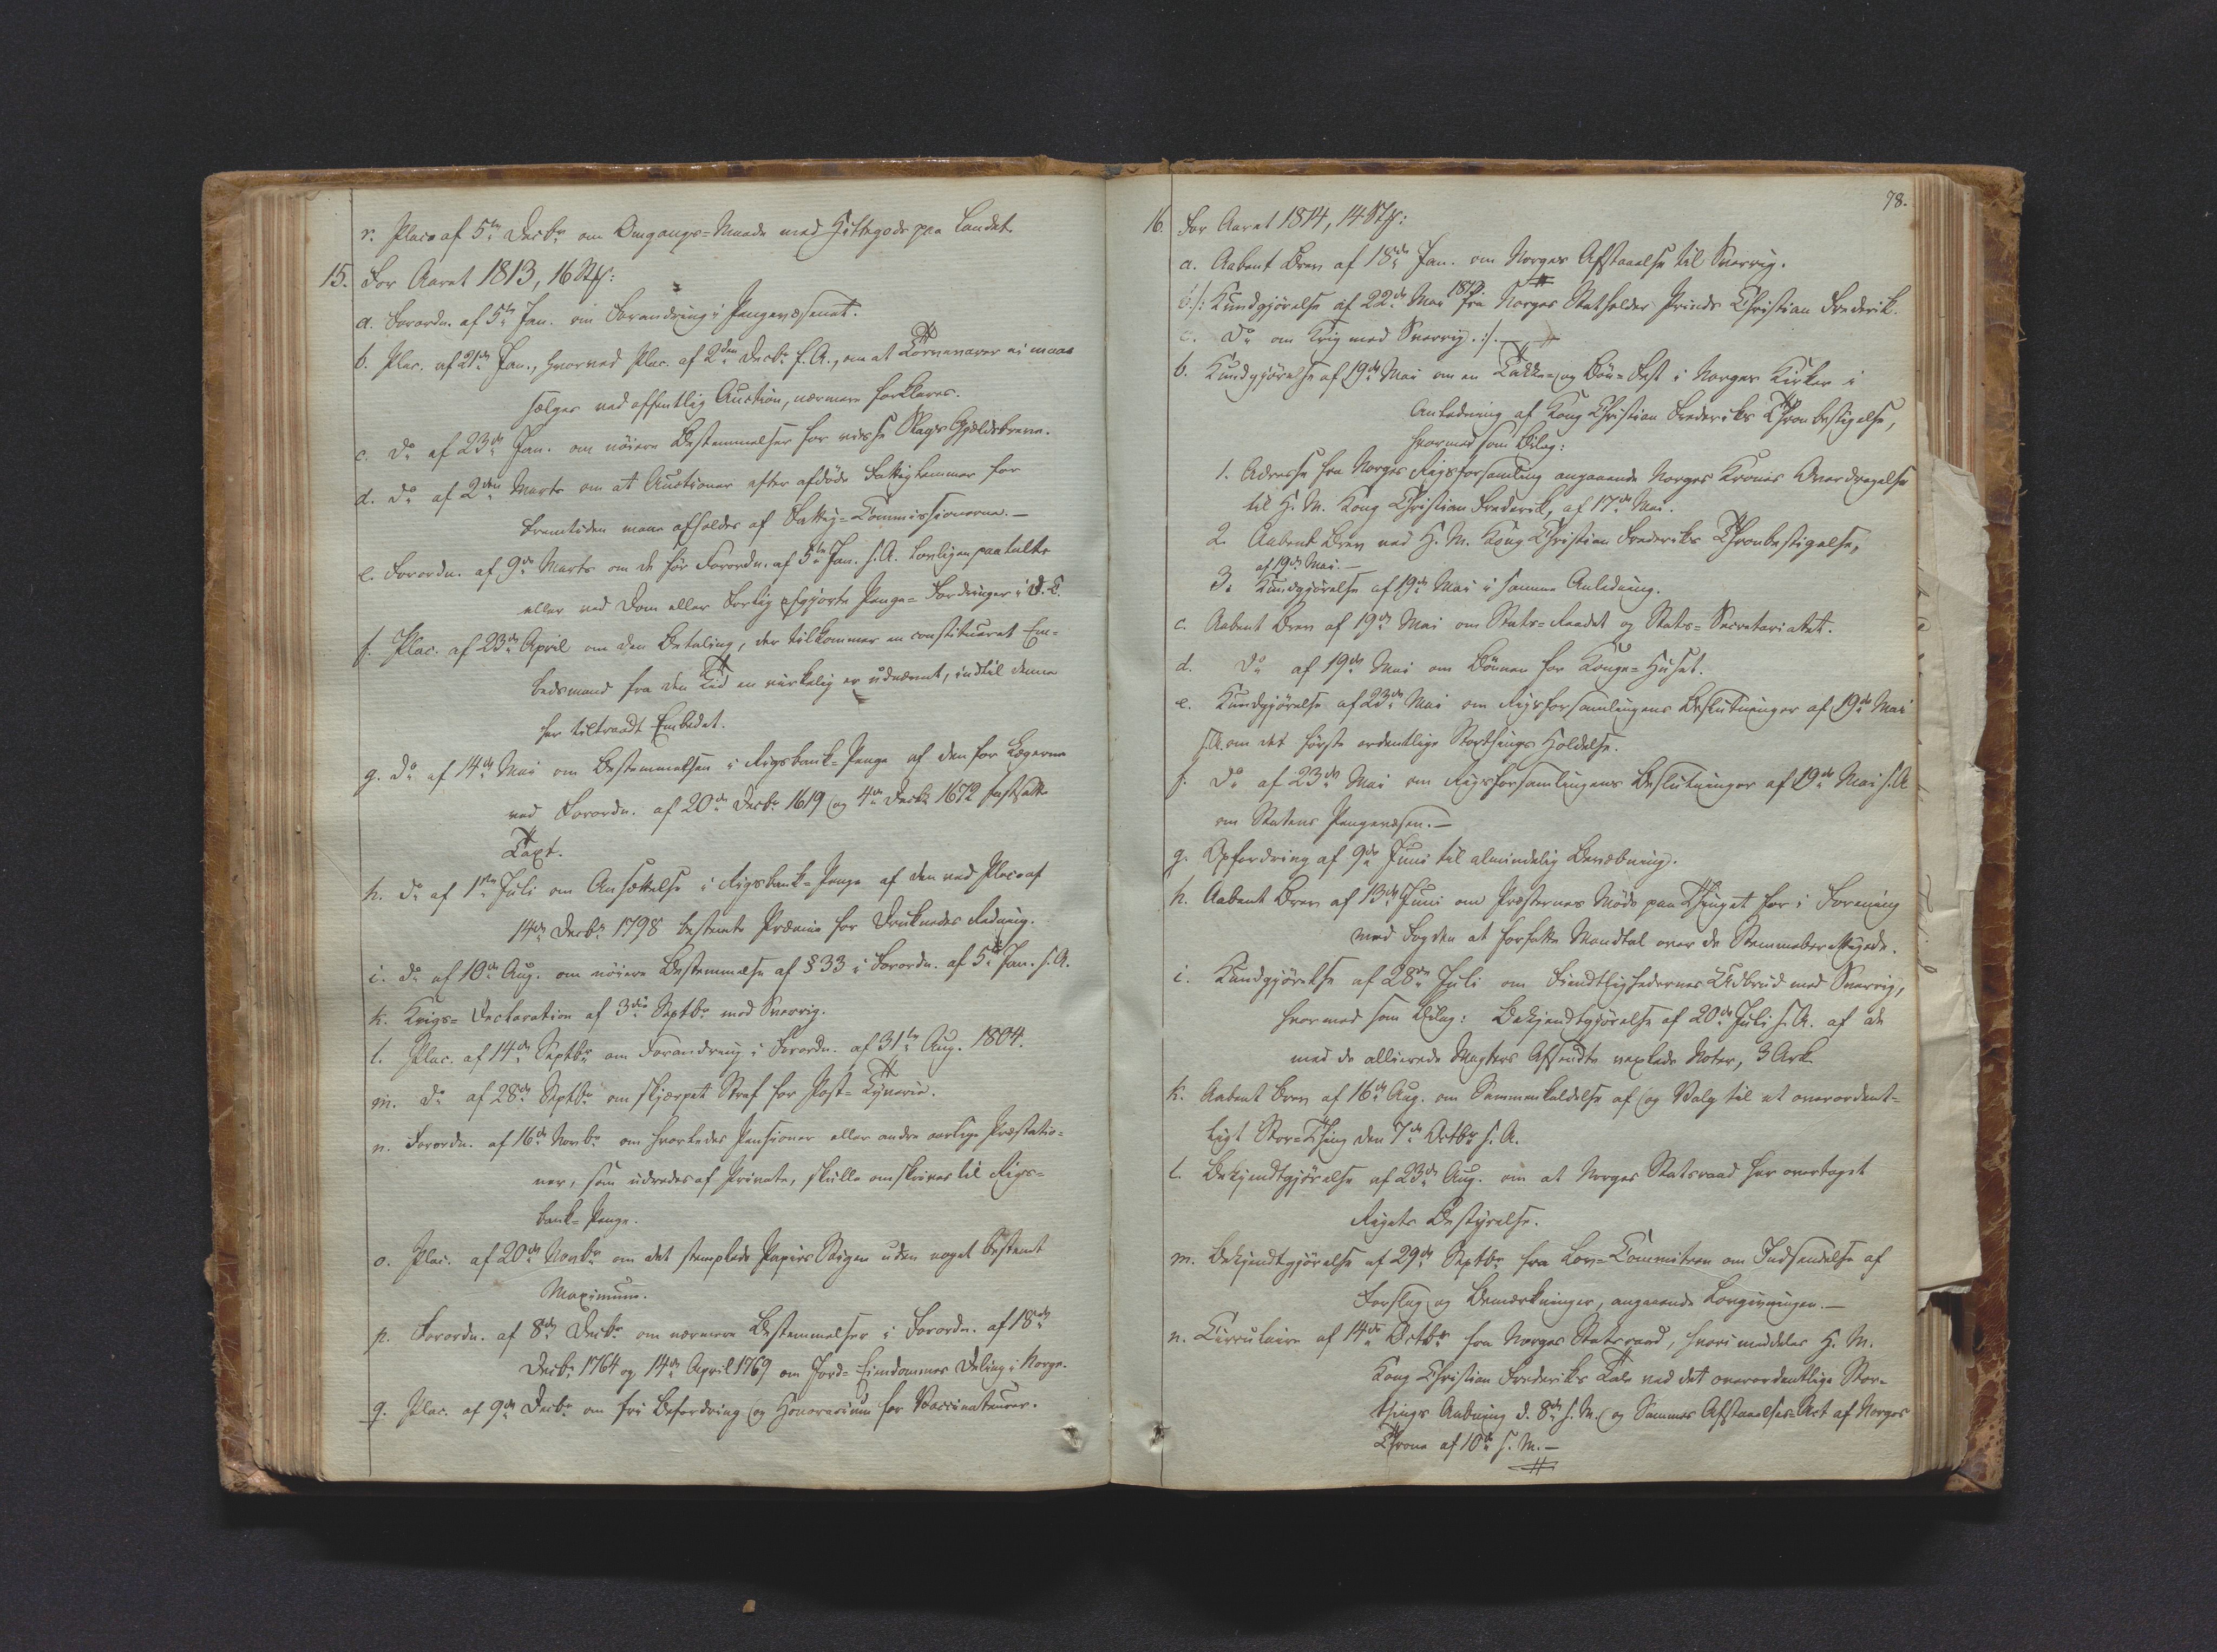 r. Plac. af 5te Decbr om Omgangs-Maade med Hittegods paa Landet
15. For Aaret 1813, 16 Stk:
a. Forordn. af 5te Jan. om Forandring i Pengevæsenet.
b. Plac. af 21de Jan., hvorved Plac. af 2den Decbr f. A., om at Kornvarer ei maae
sælges ved offentlig Auction, nærmere forklares.
c. Do af 23de Jan. om nöiere Bestemmelser for visse Slags Gjeldsbreve.
d. Do af 2den Marts om at Auctioner efter afdöde Fattiglemmer for
Fremtiden maae afholdes af Fattig-Commissionerne.—
e. Forordn. af 9de Marts om de för Forordn. af 5te Jan. s. A. lovligen paatalte
eller ved Dom eller Forlig afgjorte Penge-Fordringer i D. C.
f. Plac. af 23de April om den Betaling, der tilkommer en constitueret Em-
bedsmand fra den Tid en virkelig er udnævnt, indtil denne
har tiltraadt Embedet.
g. Do af 14de Mai om Bestemmelsen i Rigsbank-Penge af den for Lægerne
ved Forordn. af 20de Decbr 1619 og 4de Decbr 1672 fastsatte
Taxt.
h. Do af 1ste Juli om Ansættelse i Rigsbank-Penge af den ved Plac. af
14de Decbr 1798 bestemte Præmie for Druknedes Redning.
i. Do af 10de Aug. om nöiere Bestemmelse af § 33 i Forordn. af 5te Jan. s. A.
k. Krigs-Declaration af 3die Septbr mod Sverrig.
l. Plac. af 14de Septbr om Forandring i Forordn. af 31te Aug. 1804.
m. Do af 28de Septbr om skjærpet Straf for Post-Tyverie.
n. Forordn. af 16de Novbr om hvorledes Pensioner eller andre aarlige Præstatio-
ner, som udredes af Private, skulle omskrives til Rigs-
bank-Penge.
o. Plac. af 20de Novbr om det stemplede Papirs Stigen uden noget bestemt
Maximum.
p. Forordn. af 8de Decbr om nærmere Bestemmelser i Forordn. af 18de
Decbr 1764 og 14de April 1769 om Jord-Eiendommes Deling i Norge.
q. Plac. af 9de Decbr om fri Befordring og Honorarium for Vaccinateurer.
78.
16. For Aaret 1814, 14 Stk:
a. Aabent Brev af 18de Jan. om Norges Afstaaelse til Sverrig.
b. /: Kundgjörelse af 22de Mai 1813 fra Norges Statholder Prinds Christian Frederik.
c. Do om Krig med Sverrig. :/.
b. Kundgjörelse af 19de Mai om en Takke- og Bön-Fest i Norges Kirker i
Anledning af Kong Christian Frederiks Thronbestigelse,
hvormed som Bilag:
1. Adresse fra Norges Rigsforsamling angaaende Norges Krones Overdragelse
til H. M. Kong Christian Frederik, af 17de Mai.
2. Aabent Brev ved H. M. Kong Christian Frederiks Thronbestigelse,
af 19de Mai.—
3. Kundgjörelse af 19de Mai i samme Anledning.
c. Aabent Brev af 19de Mai om Stats-Raadet og Stats-Secretariatet.
d. Do af 19de Mai om Bönnen for Konge-Huset.
e. Kundgjörelse af 23de Mai om Rigsforsamlingens Beslutninger af 19de Mai
s. A. om det förste ordentlige Storthings Holdelse.
f. Do af 23de Mai om Rigsforsamlingens Beslutninger af 19de Mai s. A
om Statens Pengevæsen.—
g. Opfordring af 9de Juni til almindelig Bevæbning.
h. Aabent Brev af 13de Juni om Præsternes Möde paa Thinget for i Forening
med Fogden at forfatte Mandtal over de Stemmeberettigede.
i. Kundgjörelse af 28de Juli om Fiendtlighedernes Udbrud med Sverrig,
hvormed som Bilag: Bekjendtgjörelse af 20de Juli s. A. af de
med de allierede Magters Afsendte vexlede Noter, 3 Ark.
k. Aabent Brev af 16de Aug. om Sammenkaldelse af og Valg til et overordent-
ligt Stor-Thing den 7de Octbr s. A.
l. Bekjendtgjörelse af 23de Aug. om at Norges Statsraad har overtaget
Rigets Bestyrelse.
m. Bekjendtgjörelse af 29de Septbr fra Lov-Commiteen om Indsendelse af
Forslag og Bemærkninger, angaaende Lovgivningen.—
n. Circulaire af 14de Octbr fra Norges Statsraad, hvori meddeles H. M.
Kong Christian Frederiks Tale ved det overordentlige Stor-
things Aabning d. 8de s. M. og Sammes Afstaaelses-Act af Norges
Throne af 10de s. M.—